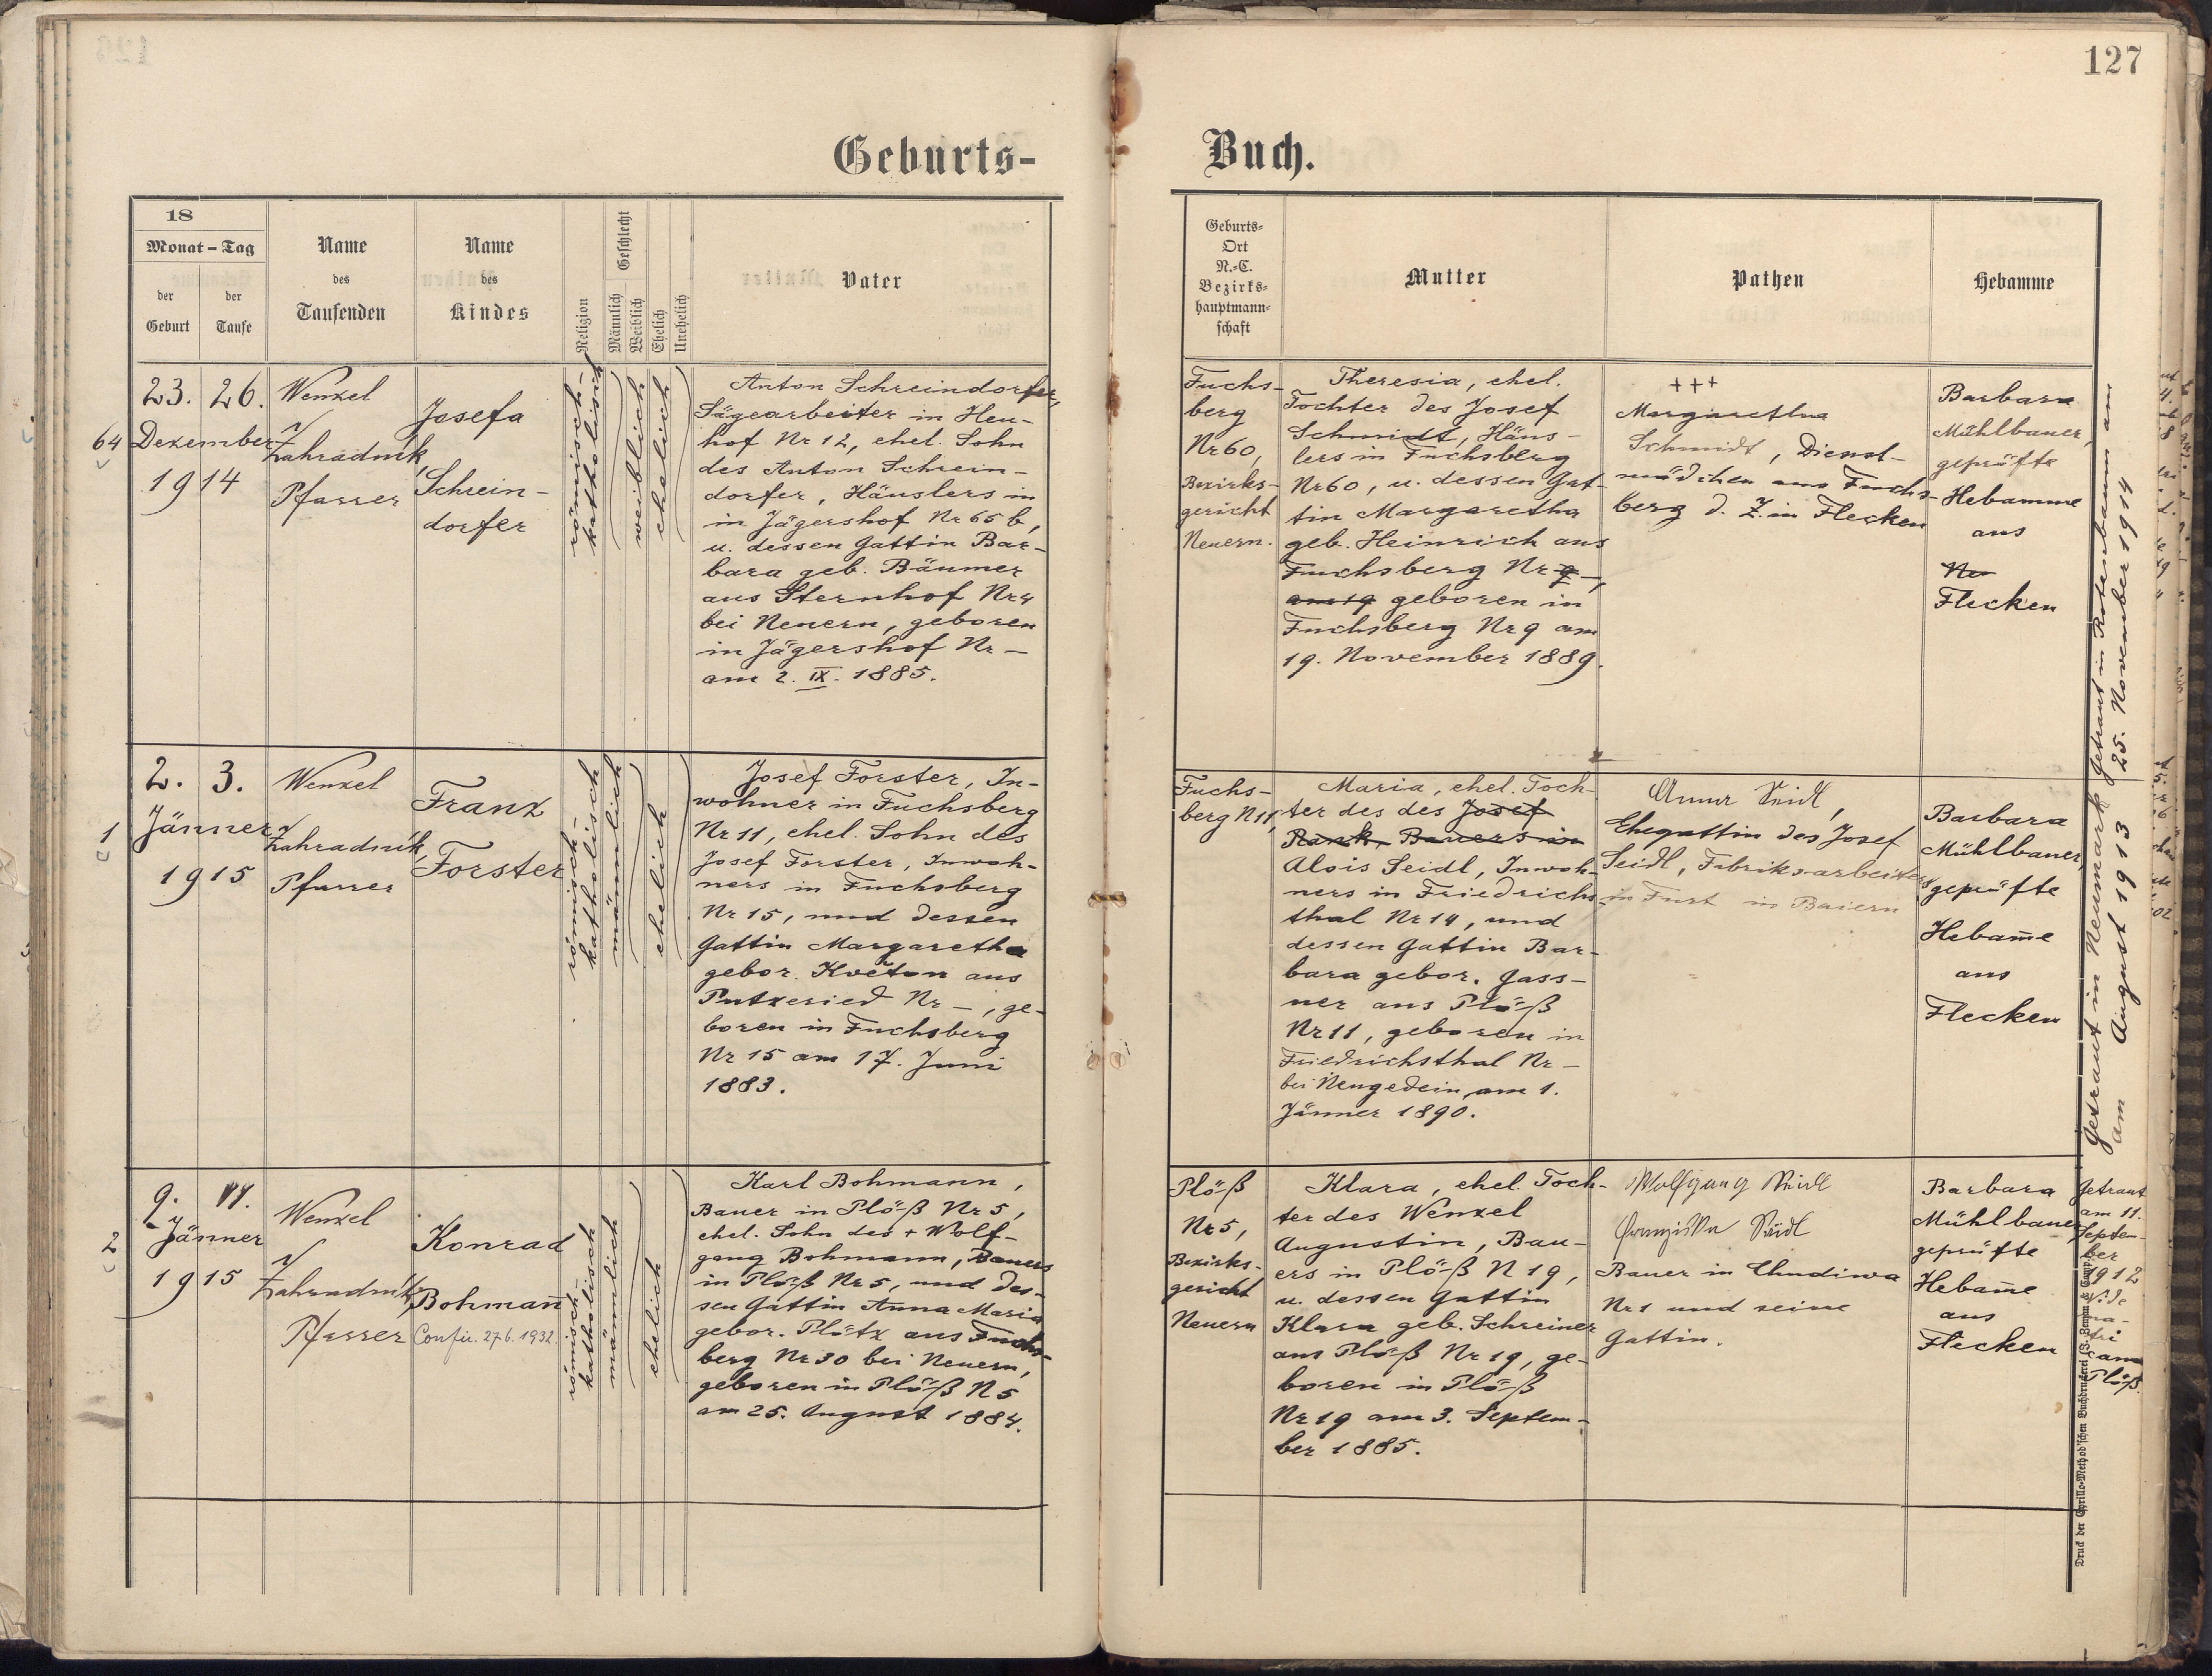 127
Geburts-
Buch.
18
Monat - Tag
der Geburt
der Taufe
Name
des
Taufenden
Name
des
Kindes
Religion
Geschlecht
Männlich
Weiblich
Ehelich
Unehelich
Vater
Geburts-
Ort
N.-C.
Bezirks-
hauptmann-
schaft
Mutter
Pathen
Hebamme
64
23. 26.
Dezember
1914
Wenzel
Zahradník,
Pfarrer
Josefa
Schrein-
dorfer
römisch-
katholisch
weiblich
ehelich
Anton Schreindorfer,
Sägearbeiter in Heu-
hof Nr 12, ehel. Sohn
des Anton Schrein-
dorfer, Häuslers in
in Jägershof Nr 65 b,
u. dessen Gattin Bar-
bara geb. Bäumer
aus Sternhof Nr 4
bei Neuern, geboren
in Jägershof Nr —
am 2. IX. 1885.
Fuchs-
berg
Nr 60,
Bezirks-
gericht
Neuern.
Theresia, ehel.
Tochter des Josef
Schmidt, Häus-
lers in Fuchsberg
Nr 60, u. dessen Gat-
tin Margaretha
geb. Heinrich aus
Fuchsberg Nr 9 —,
am 19 geboren in
Fuchsberg Nr 9 am
19. November 1889.
+++
Margaretha
Schmidt, Dienst-
mädchen aus Fuchs-
berg d. Z. in Flecken
Barbara
Mühlbauer,
geprüfte
Hebamme
aus
Ne
Flecken
Getraut in Rotenbaum am
25. November 1914
1
2. 3.
Jänner
1915
Wenzel
Zahradník,
Pfarrer
Franz
Forster
römisch-
katholisch
männlich
ehelich
Josef Forster, In-
wohner in Fuchsberg
Nr 11, ehel. Sohn des
Josef Forster, Inwoh-
ners in Fuchsberg
Nr 15, und dessen
Gattin Margaretha
gebor. Květon aus
Putzeried Nr —, ge-
boren in Fuchsberg
Nr 15 am 17. Juni
1883.
Fuchs-
berg N 11,
Maria, ehel. Toch-
ter des des Josef
Rank, Bauers in
Alois Seidl, Inwoh-
ners in Friedrichs-
thal Nr 14, und
dessen Gattin Bar-
bara gebor. Gass-
ner aus Plöß
Nr 11, geboren in
Friedrichsthal Nr —
bei Neugedein, am 1.
Jänner 1890.
Anna Seidl,
Ehegattin des Josef
Seidl, Fabriksarbeiters
in Furt in Baiern
Barbara
Mühlbauer,
geprüfte
Hebam̅e
aus
Flecken
Getraut in Neumark
am August 1913
2
9. 11.
Jänner
1915
Wenzel
Zahradník,
Pfarrer
Konrad
Bohman̅
Confir. 27.6.1932.
römisch-
katholisch
männlich
ehelich
Karl Bohmann,
Bauer in Plöß Nr 5,
ehel. Sohn des + Wolf-
gang Bohmann, Bauers
in Plöß Nr 5, und des-
sen Gattin Anna Maria
gebor. Plötz aus Fuchs-
berg Nr 30 bei Neuern,
geboren in Plöß N 5
am 25. August 1884.
Plöß
Nr 5,
Bezirks-
gericht
Neuern
Klara, ehel. Toch-
ter des Wenzel
Augustin, Bau-
ers in Plöß N 19,
u. dessen Gattin
Klara geb. Schreiner
aus Plöß Nr 19, ge-
boren in Plöß
Nr 19 am 3. Septem-
ber 1885.
Wolfgang Seidl
Franziska Seidl
Bauer in Chudiwa
Nr 1 und seine
Gattin.
Barbara
Mühlbauer
geprüfte
Hebam̅e
aus
Flecken
Getraut
am 11.
Septem-
ber
1912
Plöß.
Druck der Cyrillo-Method'schen Buchdruckerei